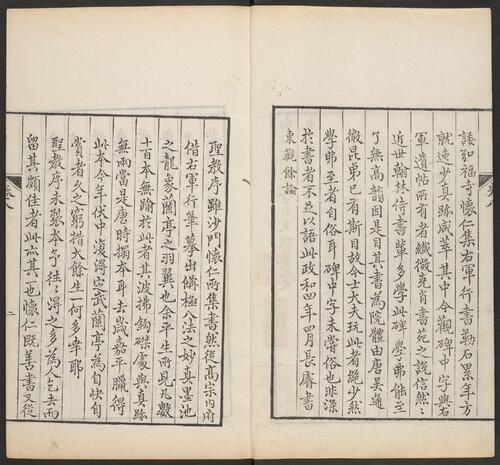 諉弘福寺懷仁集右軍行書勒石累年方
就逸少真跡咸萃其中今觀碑中字與右
軍遺帖所有者纖微克肖書苑之說信然然
近世翰林侍書輩多學此碑學弗能至
了無高韻因自目其書為院體由唐吳通
微昆弟已有斯目故今士大夫玩此者絕少然
學弗至者自俗耳碑中字未嘗俗也非深
於書者不足以語此政和四年四月長睿書
東觀餘論
聖教序雖沙門懷仁所集書然從高宗內府
借右軍行筆摹出備極八法之妙真墨池
之龍象蘭亭之羽翼也余平生所見凡數
十百本無踰於此者其波拂鈎磔處與真跡
無兩當是唐時搨本耳去歲嘉平臘得
此本今年伏中復得定武蘭亭為自快自
賞者久之窮措大餘生一何多幸耶
聖教序未裂本予往往得之多為人乞去而
留其頗佳者此亦其一也懷仁既善書又從